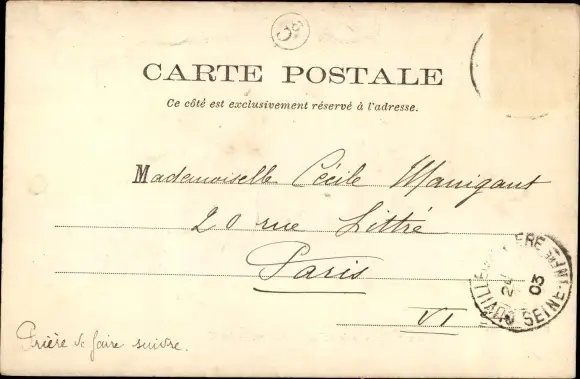 CARTE POSTALE
Ce côté est exclusivement réservé à l'adresse.
Mademoiselle Cécile Manigant
20 rue Littré
Paris
VI
Prière de faire suivre.
24
03
SEINE